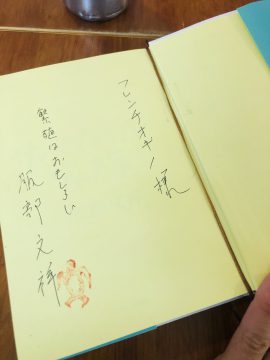 フレンチオギノ様
繁殖はおもしろい
服部文祥